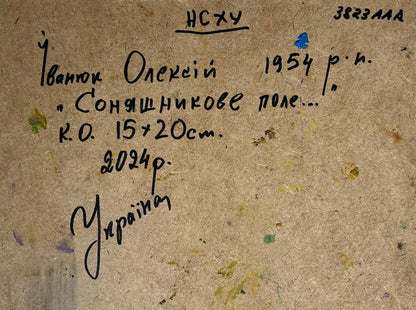 НСХУ
3823ААА
Іванюк Олексій 1954 р.н.
„Соняшникове поле..."
К.О. 15×20см.
2024р.
Україна